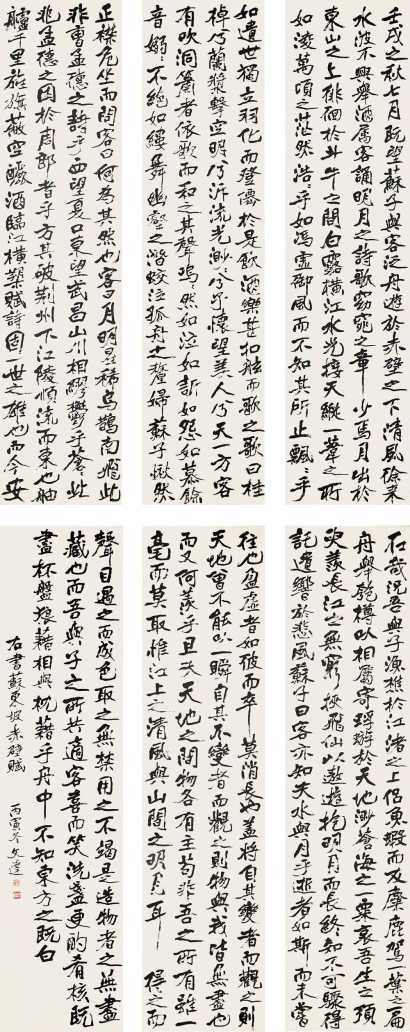 壬戌之秋七月既望蘇子與客泛舟遊於赤壁之下清風徐來
水波不興舉酒屬客誦明月之詩歌窈窕之章少焉月出於
東山之上徘徊於斗牛之間白露橫江水光接天縱一葦之所
如淩萬頃之茫然浩浩乎如馮虛御風而不知其所止飄飄乎
如遺世獨立羽化而登僊於是飲酒樂甚扣舷而歌之歌曰桂
棹兮蘭槳擊空明兮泝流光渺渺兮予懷望美人兮天一方客
有吹洞簫者依歌而和之其聲嗚嗚然如泣如訴如怨如慕餘
音嫋嫋不絕如縷舞幽壑之潛蛟泣孤舟之嫠婦蘇子愀然
正襟危坐而問客曰何為其然也客曰月明星稀烏鵲南飛此
非曹孟德之詩乎西望夏口東望武昌山川相繆鬱乎蒼蒼此
非孟德之困於周郎者乎方其破荊州下江陵順流而東也舳
艫千里旌旗蔽空釃酒臨江橫槊賦詩固一世之雄也而今安
在哉況吾與子漁樵於江渚之上侶魚蝦而友麋鹿駕一葉之扁
舟舉匏樽以相屬寄蜉蝣於天地渺滄海之一粟哀吾生之須
臾羨長江之無窮挾飛仙以遨遊抱明月而長終知不可驟得
託遺響於悲風蘇子曰客亦知夫水與月乎逝者如斯而未嘗
往也盈虛者如彼而卒莫消長也蓋將自其變者而觀之則
天地曾不能以一瞬自其不變者而觀之則物與我皆無盡也
而又何羨乎且夫天地之間物各有主苟非吾之所有雖一
毫而莫取惟江上之清風與山間之明月耳得之而
聲目遇之而成色取之無禁用之不竭是造物者之無盡
藏也而吾與子之所共適客喜而笑洗盞更酌肴核既
盡杯盤狼藉相與枕藉乎舟中不知東方之既白
右書蘇東坡赤壁賦
丙寅冬文